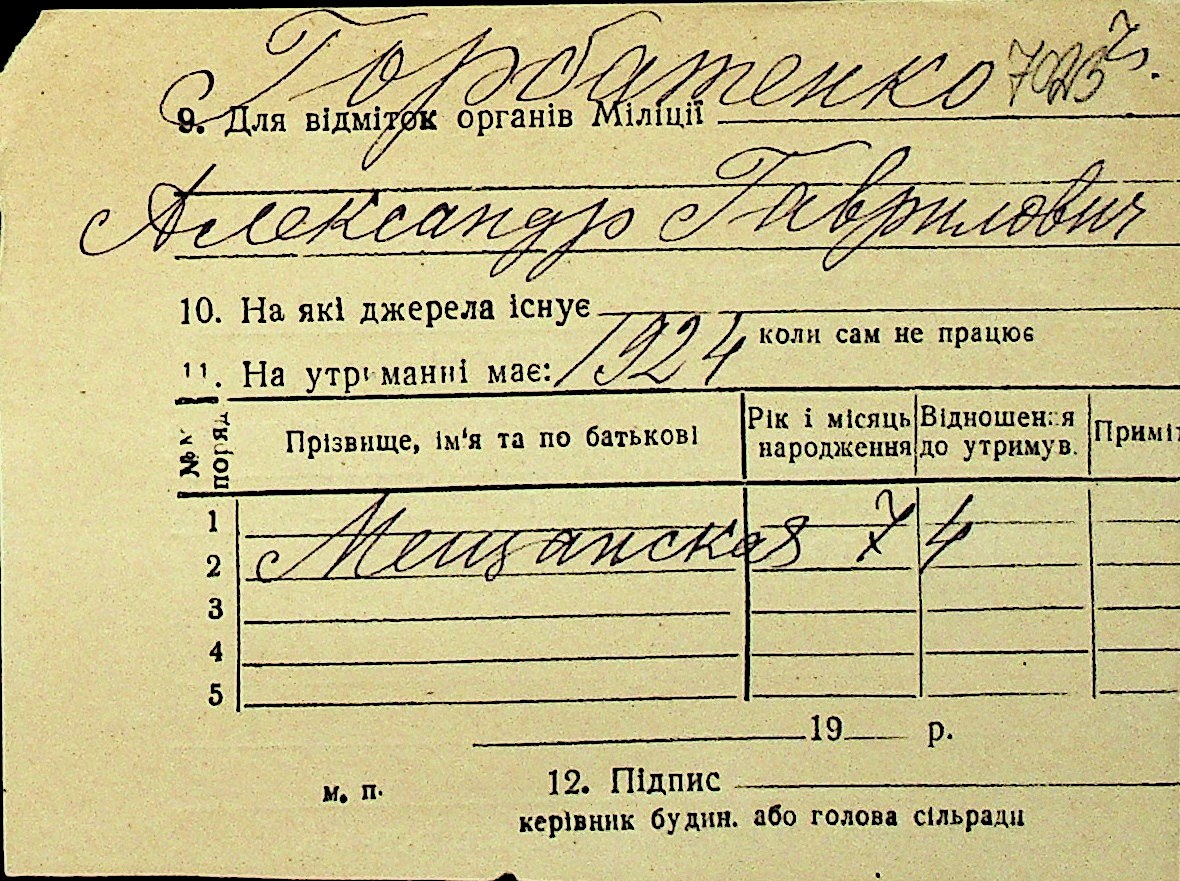 Горбатенко
9. Для відміток органів Міліції
Александр Гаврилович
10. На які джерела існує
коли сам не працює
11. На утриманні має: 1924
№№ поряд
Прізвище, ім'я та по батькові
Рік і місяць народження
Відношення до утримув.
Приміт
1
Мещанская 74
2
3
4
5
19 р.
м. п.
12. Підпис
керівник будин. або голова сільради